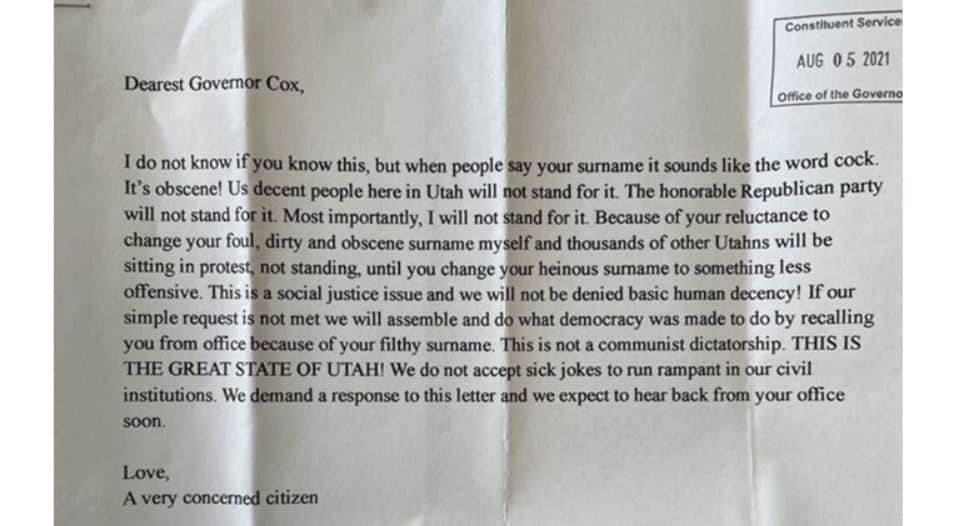 Constituent Service
AUG 05 2021
Office of the Governo
Dearest Governor Cox,
I do not know if you know this, but when people say your surname it sounds like the word cock.
It's obscene! Us decent people here in Utah will not stand for it. The honorable Republican party
will not stand for it. Most importantly, I will not stand for it. Because of your reluctance to
change your foul, dirty and obscene surname myself and thousands of other Utahns will be
sitting in protest, not standing, until you change your heinous surname to something less
offensive. This is a social justice issue and we will not be denied basic human decency! If our
simple request is not met we will assemble and do what democracy was made to do by recalling
you from office because of your filthy surname. This is not a communist dictatorship. THIS IS
THE GREAT STATE OF UTAH! We do not accept sick jokes to run rampant in our civil
institutions. We demand a response to this letter and we expect to hear back from your office
soon.
Love,
A very concerned citizen